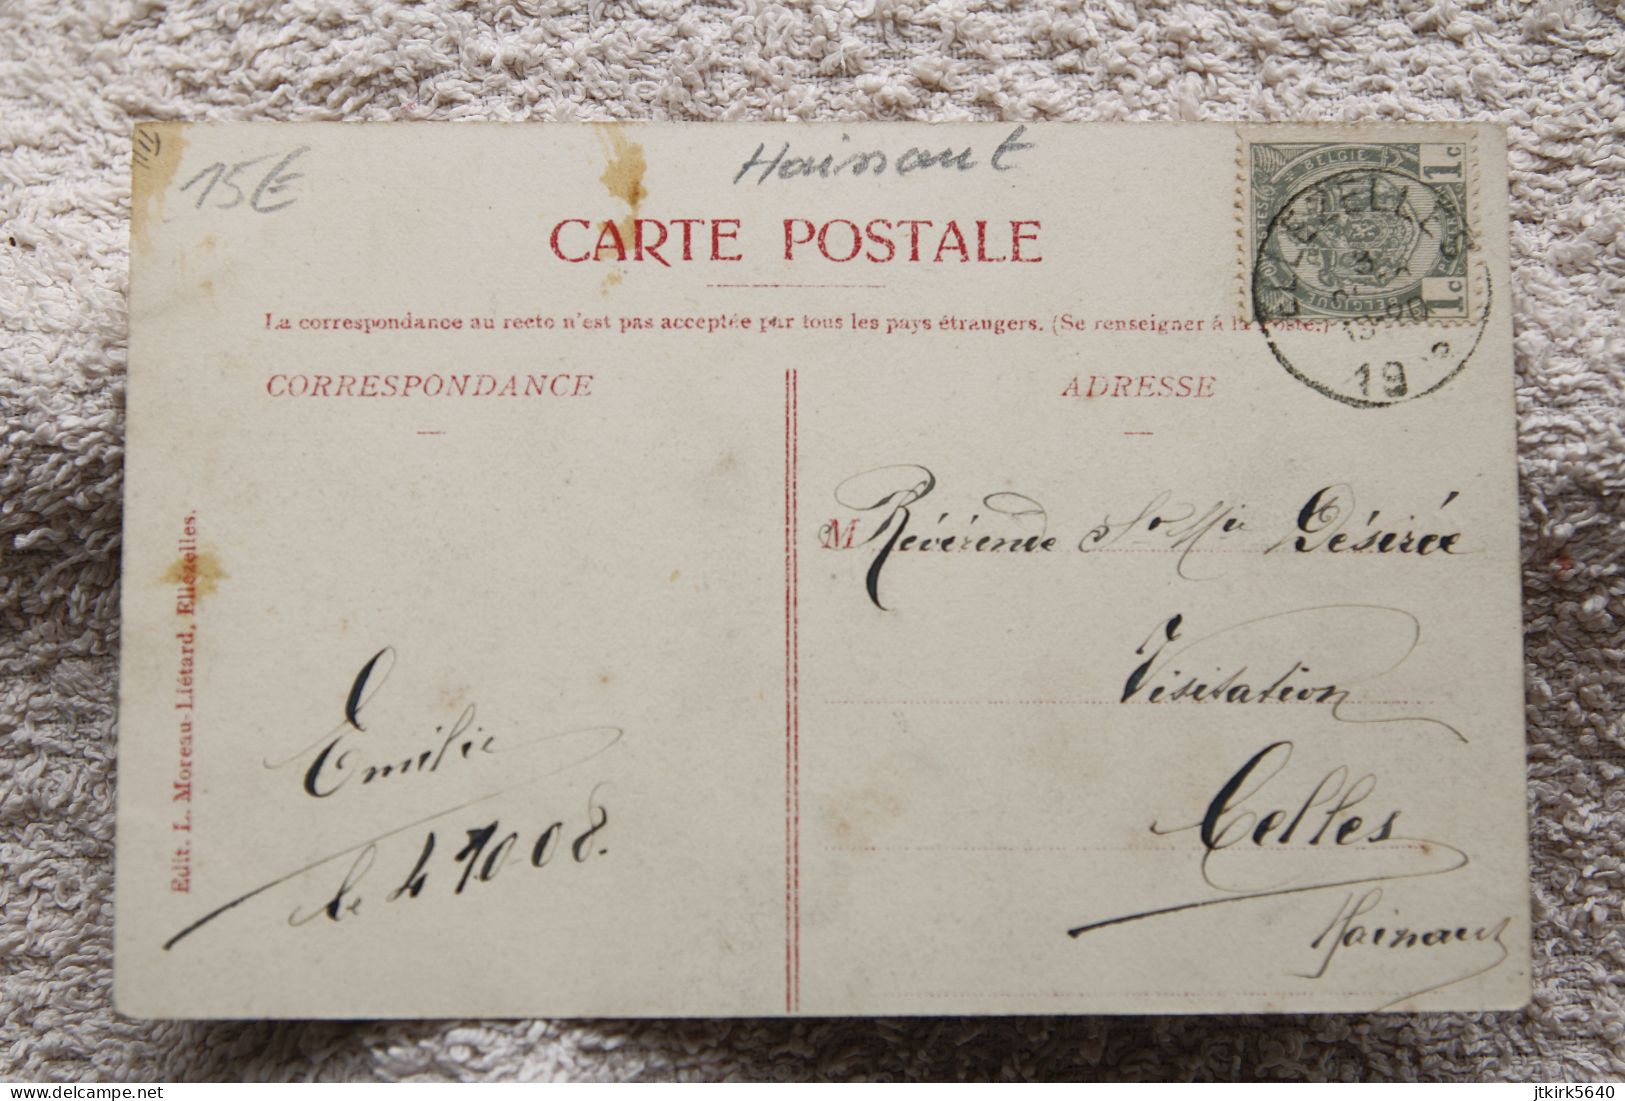 15€
Hainaut
CARTE POSTALE
La correspondance au recto n'est pas acceptée par tous les pays étrangers. (Se renseigner à la Poste.)
CORRESPONDANCE
ADRESSE
BELGIE
1c
1c
BELGIQUE
ELLEZELLES
3
19
M Révérende Sr Mie Désirée
Visitation
Celles
Hainaut
Emilie
le 4 10 08.
Edit. L. Moreau-Liétard, Ellezelles.
jtkirk5640
delcampe.net